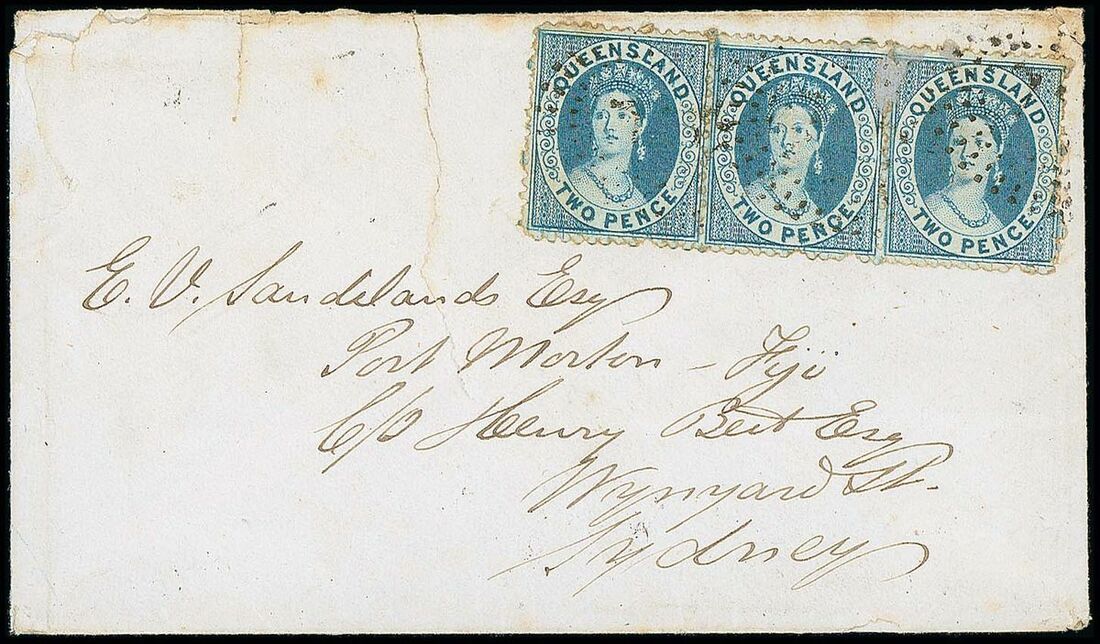 QUEENSLAND
TWO PENCE
QUEENSLAND
TWO PENCE
QUEENSLAND
TWO PENCE
E. V. Sandilands Esq
Port Morton - Fiji
C/o Henry Beit Esq
Wynyard St.
Sydney